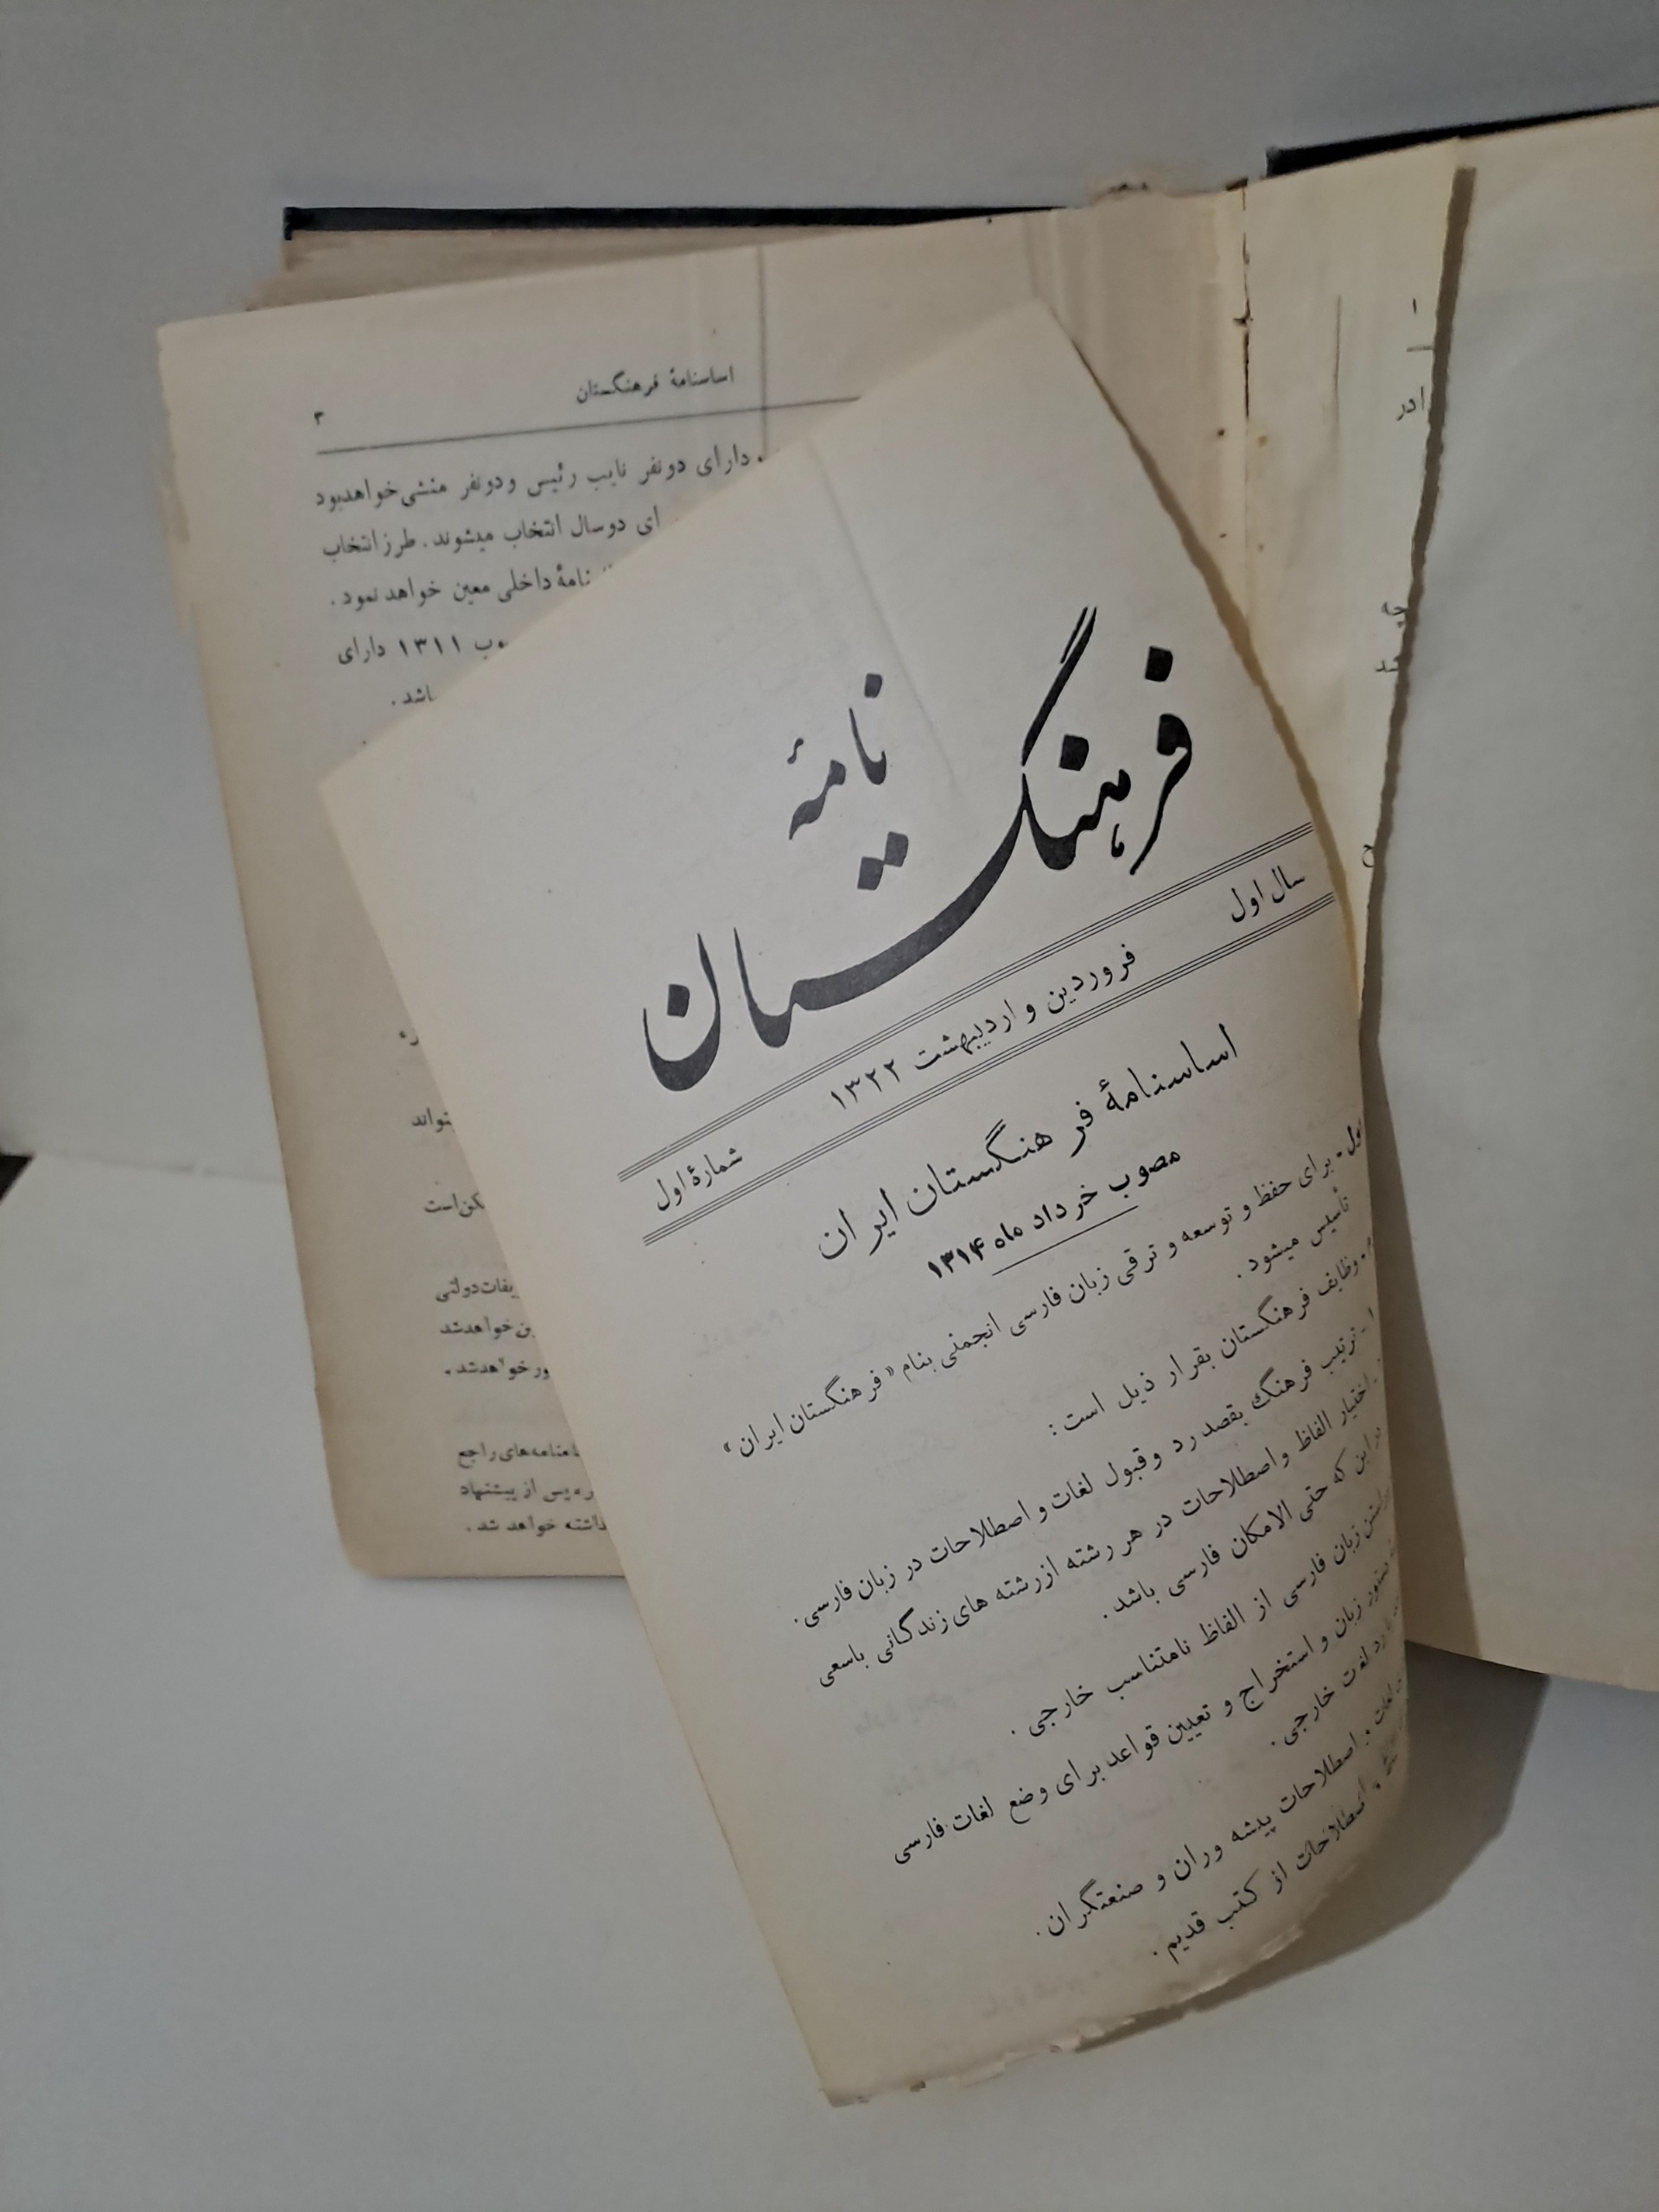 نامهٔ
فرهنگستان
سال اول
فروردین و اردیبهشت ۱۳۲۲
شمارهٔ اول
اساسنامهٔ فرهنگستان ایران
مصوب خرداد ماه ۱۳۱۴
برای حفظ و توسعه و ترقی زبان فارسی انجمنی بنام «فرهنگستان ایران»
تأسیس میشود.
وظایف فرهنگستان بقرار ذیل است:
۱ـ ترتیب فرهنگ بقصد رد و قبول لغات و اصطلاحات در زبان فارسی.
اختیار الفاظ و اصطلاحات در هر رشته از رشته های زندگانی باسعی
در این که حتی الامکان فارسی باشد.
زبان فارسی از الفاظ نامتناسب خارجی.
دستور زبان و استخراج و تعیین قواعد برای وضع لغات فارسی
رد لغات خارجی.
لغات و اصطلاحات پیشه وران و صنعتگران.
و اصطلاحات از کتب قدیم.
اساسنامهٔ فرهنگستان
۳
دارای دونفر نایب رئیس ودونفر منشی خواهدبود
ای دوسال انتخاب میشوند. طرز انتخاب
نامهٔ داخلی معین خواهد نمود.
۱۳۱۱ دارای
دولتی
خواهدشد
خواهدشد.
نامه‌های راجع
پس از پیشنهاد
خواهد شد.